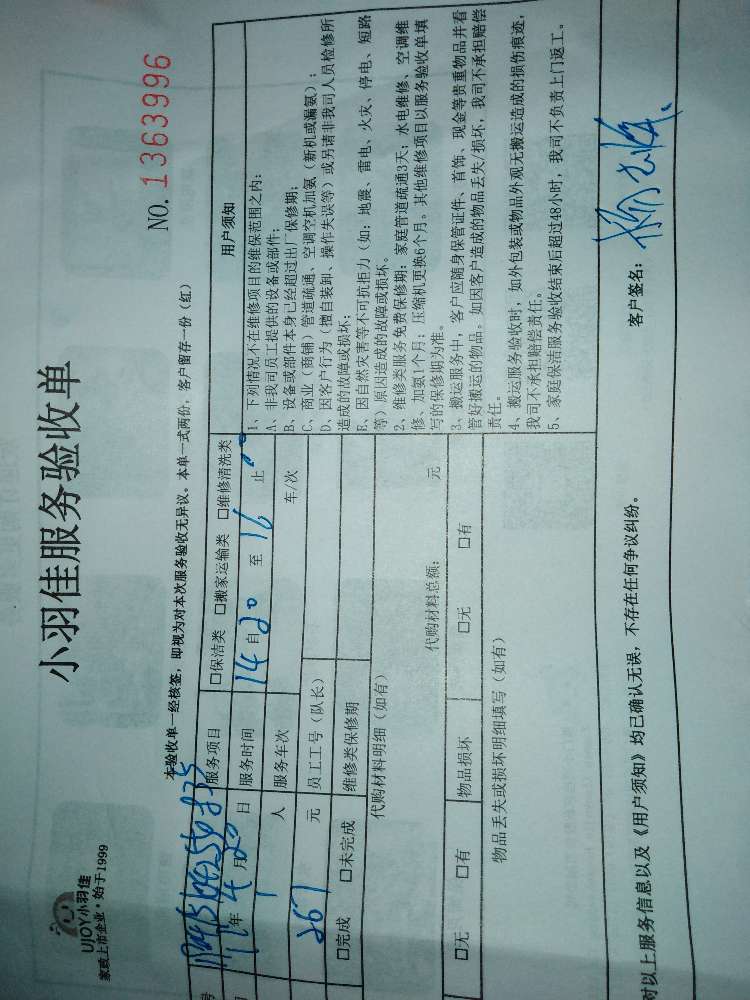 UJOY小羽佳
家政上市企业·始于1999
小羽佳服务验收单
NO. 1363996
本验收单一经核签，即视为对本次服务验收无异议。本单一式两份，客户留存一份（红）
号
服务项目 □保洁类 □搬家运输类 □维修清洗类
年 4 月 20 日 服务时间 14 自 20 至 16 止
1 人 服务车次 车/次
267 元 员工工号（队长）
□完成 □未完成 维修类保修期
代购材料明细（如有）
代购材料总额： 元
□无 □有 物品损坏 □无 □有
物品丢失或损坏明细填写（如有）
用户须知
1、下列情况不在维修项目的维保范围之内：
A、非我司员工提供的设备或部件；
B、设备或部件本身已经超过出厂保修期；
C、商业（商铺）管道疏通、空调空机加氨（新机或漏氨）；
D、因客户行为（擅自装卸、操作失误等）或另请非我司人员检修所
造成的故障或损坏；
E、因自然灾害等不可抗拒力（如：地震、雷电、火灾、停电、短路
等）原因造成的故障或损坏。
2、维修类服务免费保修期：家庭管道疏通3天；水电维修、空调维
修、加氨1个月；压缩机更换6个月。其他维修项目以服务验收单填
写的保修期为准。
3、搬运服务中，客户应随身保管证件、首饰、现金等贵重物品并看
管好搬运的物品。如因客户造成的物品丢失/损坏，我司不承担赔偿
责任。
4、搬运服务验收时，如外包装或物品外观无搬运造成的损伤痕迹，
我司不承担赔偿责任。
5、家庭保洁服务验收结束后超过48小时，我司不负责上门返工。
对以上服务信息以及《用户须知》均已确认无误，不存在任何争议纠纷。
客户签名：